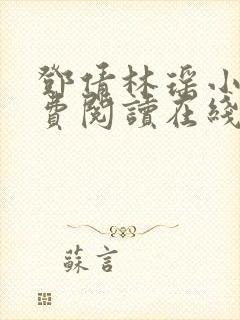 鄧倩林瑶小
費閱讀在綫
蘇言